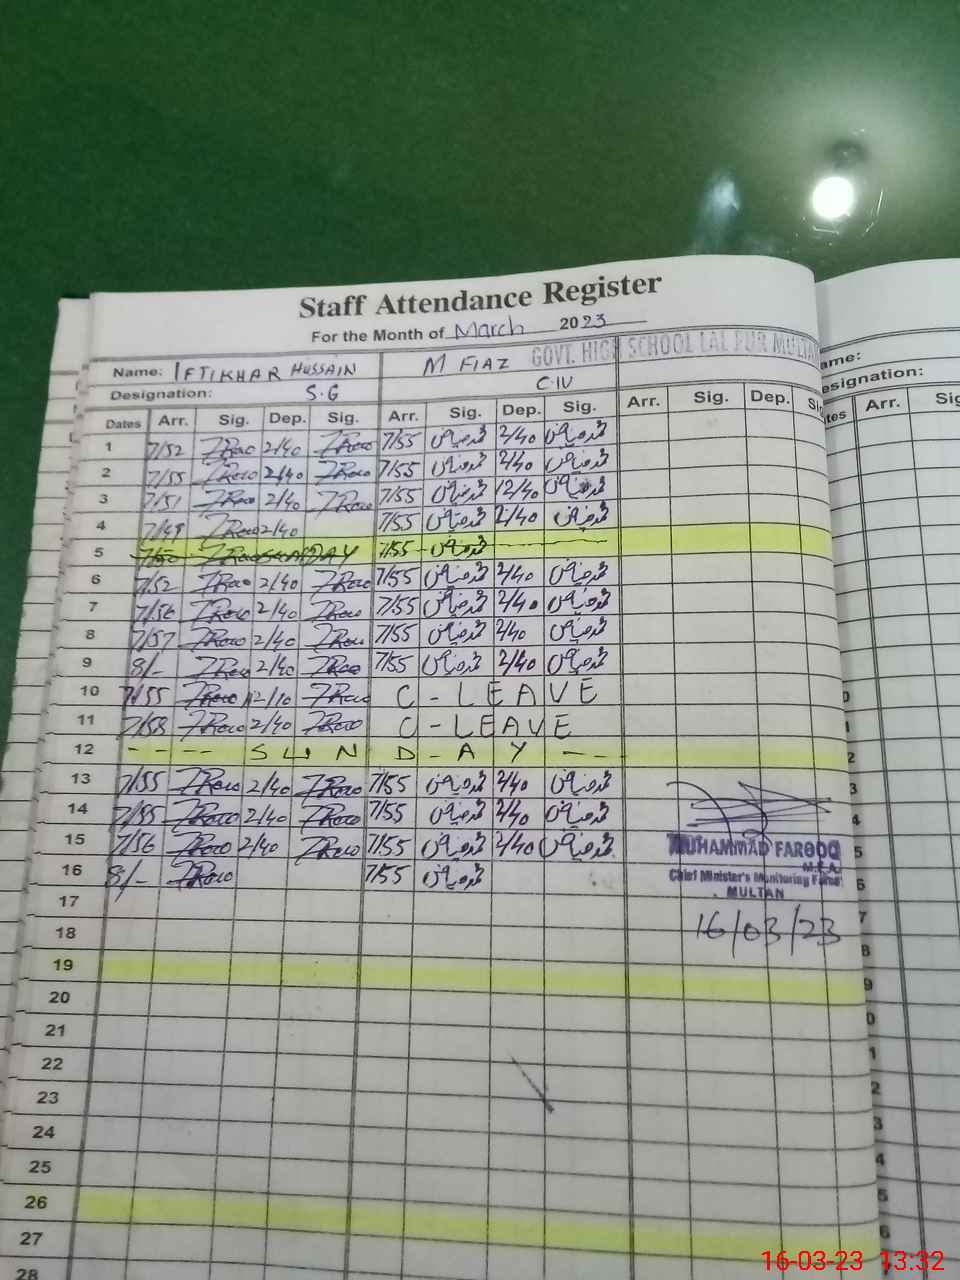 Staff Attendance Register
For the Month of March 2023
Name: IFTIKHAR HUSSAIN M FIAZ GOVT. HIGH SCHOOL LAL PUR MULTAN
Designation: S.G C-IV
Dates Arr. Sig. Dep. Sig. Arr. Sig. Dep. Sig. Arr. Sig. Dep. Sig
1 7/52 2/40 7/55 محمد فیاض 2/40 محمد فیاض
2 7/55 2/40 7/55 محمد فیاض 2/40 محمد فیاض
3 7/51 2/40 7/55 محمد فیاض 12/40 محمد فیاض
4 7/49 2/40 7/55 محمد فیاض 2/40 محمد فیاض
5 SUNDAY 7/55 محمد فیاض
6 7/52 2/40 7/55 محمد فیاض 2/40 محمد فیاض
7 7/56 2/40 7/55 محمد فیاض 2/40 محمد فیاض
8 7/57 2/40 7/55 محمد فیاض 2/40 محمد فیاض
9 8/- 2/40 7/55 محمد فیاض 2/40 محمد فیاض
10 7/55 12/10 C - LEAVE
11 7/58 2/40 C - LEAVE
12 - - - - - - S U N D - A Y -
13 7/55 2/40 7/55 محمد فیاض 2/40 محمد فیاض
14 7/55 2/40 7/55 محمد فیاض 2/40 محمد فیاض
15 7/56 2/40 7/55 محمد فیاض 2/40 محمد فیاض
16 8/- 7/55 محمد فیاض
MUHAMMAD FAROOQ
M.E.A
Chief Minister's Monitoring Force
MULTAN
16/03/23
17
18
19
20
21
22
23
24
25
26
27
28
ame:
esignation:
tes Arr. Sig
16-03-23 13:32